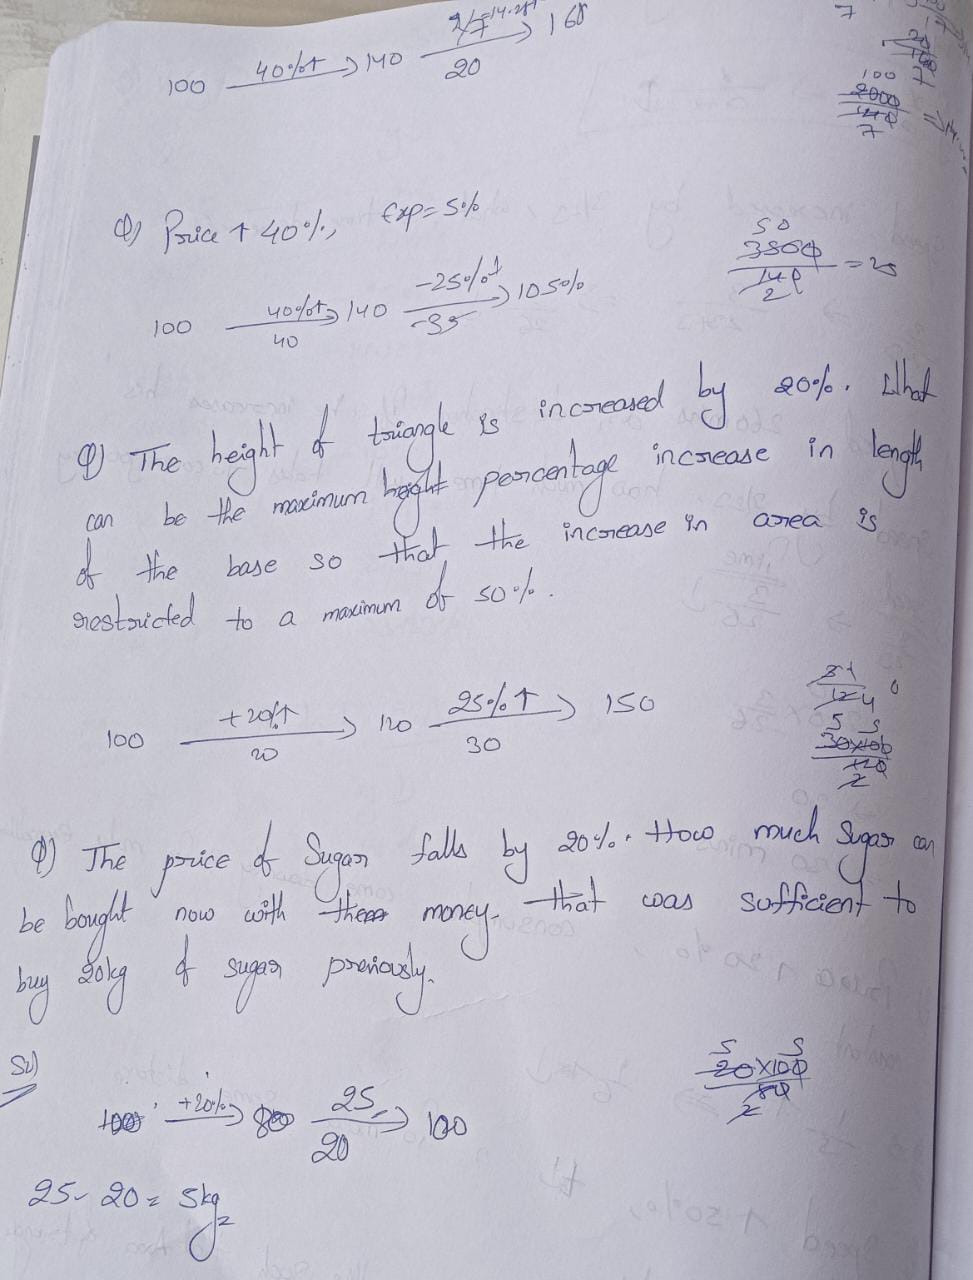 100 40%↑ → 140 20 → 160
100
2000
140
7
Q) Price ↑ 40%, Exp = 5%
50
3500
140
2
= 25
100 40%↑ 40 → 140 -25%↓ -35 → 105%
Q) The height of triangle is increased by 20%. What
can be the maximum height percentage increase in length
of the base so that the increase in area is
restricted to a maximum of 50%.
100 +20%↑ 20 → 120 25%↑ 30 → 150
5 5
30×100
120
2
Q) The price of Sugar falls by 20%. How much Sugar can
be bought now with money that was sufficient to
buy 20kg of sugar previously.
5 5
20×100
80
2
100 +20% → 80 25 20 → 100
25 - 20 = 5kg